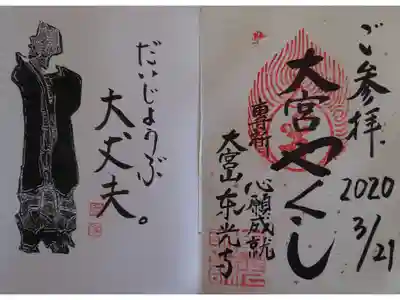 ご参拝
2020
3/21
大宮やくし
専祈
心願成就
大宮山東光寺
だいじょうぶ
大丈夫。